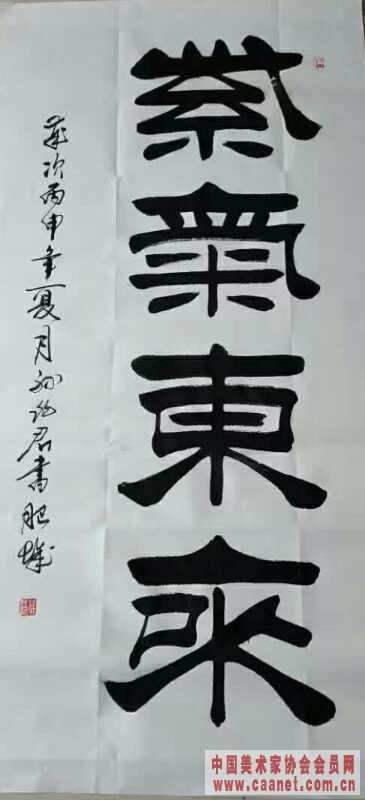 紫氣東來
歲次丙申年夏月孙君書肥城
中国美术家协会会员网
www.caanet.com.cn